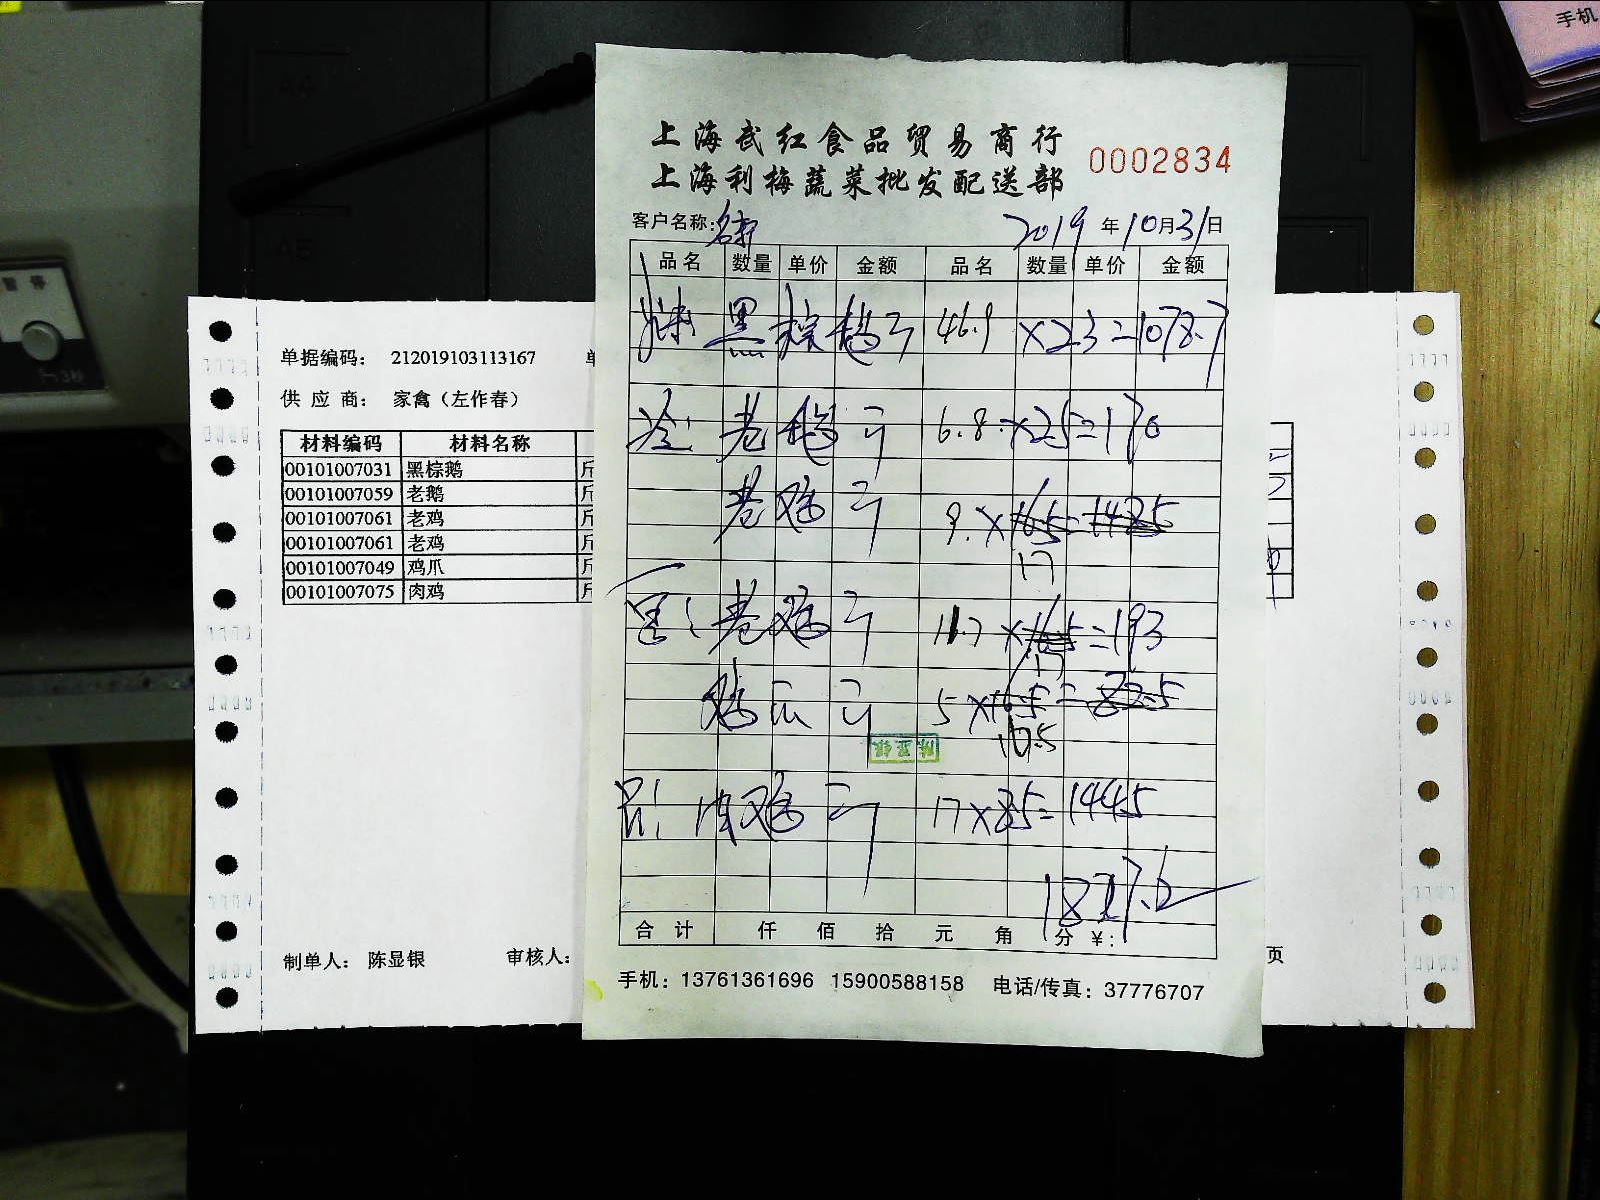 手机
A4
A5
暂停
上海武红食品贸易商行
上海利梅蔬菜批发配送部
0002834
客户名称:
2019 年 10 月 31 日
品名 数量 单价 金额 品名 数量 单价 金额
黑棕鹅 46.9 ×23=1078.7
冷: 老鹅 6.8 ×25=170
老鸡 9. ×16.5=148.5
17
老鸡 11.7 ×16.5=193
17
鸡爪 5 ×16.5=82.5
10.5
陈显银
肉鸡 17×8.5=144.5
合计 仟 佰 拾 元 角 分 ¥:
手机: 13761361696 15900588158 电话/传真: 37776707
单据编码: 212019103113167
供应商: 家禽(左作春)
材料编码 材料名称
00101007031 黑棕鹅 斤
00101007059 老鹅 斤
00101007061 老鸡 斤
00101007061 老鸡 斤
00101007049 鸡爪 斤
00101007075 肉鸡 斤
制单人: 陈显银 审核人:
页